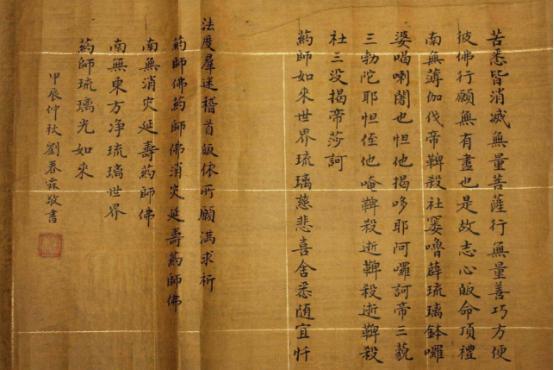 苦悉皆消滅無量菩薩行無量善巧方便
彼佛行願無有盡也是故志心皈命頂禮
南無薄伽伐帝鞞殺社窶嚕薜琉璃鉢囉
婆喝喇闍也怛他揭哆耶阿囉訶帝三藐
三勃陀耶怛侄他唵鞞殺逝鞞殺逝鞞殺
社三没揭帝莎訶
药師如來世界琉璃慈悲喜舍悉隨宜忏
法度羣迷稽首皈依所願滿求祈
药師佛药師佛消灾延壽药師佛
南無消灾延壽药師佛
南無東方净琉璃世界
药師琉璃光如來
甲辰仲秋劉春霖敬書